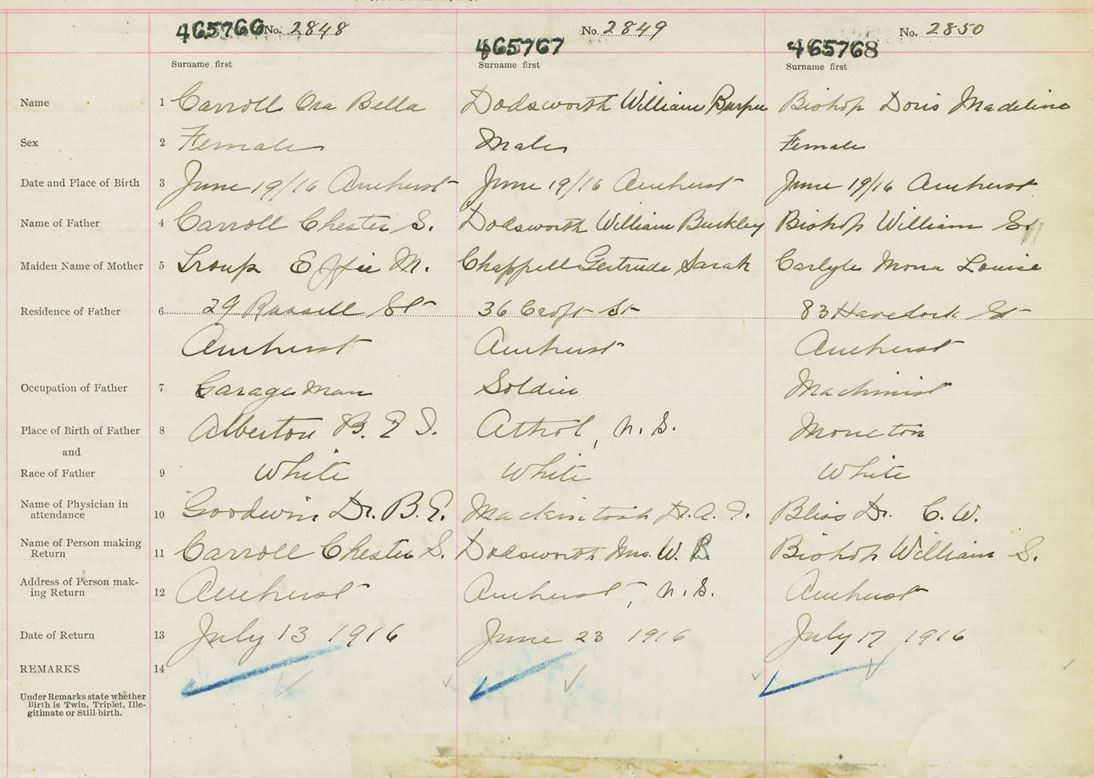 465766 No. 2848 465767 No. 2849 465768 No. 2850
Surname first Surname first Surname first
Name 1 Carroll Ora Bella Dodsworth William Burpee Bishop Doris Madeline
Sex 2 Female Male Female
Date and Place of Birth 3 June 19/16 Amherst June 19/16 Amherst June 19/16 Amherst
Name of Father 4 Carroll Chester S. Dodsworth William Buckley Bishop William
Maiden Name of Mother 5 Troup Effie M. Chappell Gertrude Sarah Carlyle Mona Louise
Residence of Father 6 29 Russell St 36 Croft St 83 Havelock St
Amherst Amherst Amherst
Occupation of Father 7 Garage Man Soldier Machinist
Place of Birth of Father 8 Alberton P. E. I. Athol, N. S. Moncton
and
Race of Father 9 White White White
Name of Physician in
attendance 10 Goodwin Dr. B. E. Mackintosh D. A. F. Bliss Dr. C. W.
Name of Person making
Return 11 Carroll Chester S. Dodsworth Mrs. W. B Bishop William S.
Address of Person mak-
ing Return 12 Amherst Amherst, N. S. Amherst
Date of Return 13 July 13 1916 June 23 1916 July 17 1916
REMARKS 14
Under Remarks state whether
Birth is Twin, Triplet, Ille-
gitimate or Still-birth.